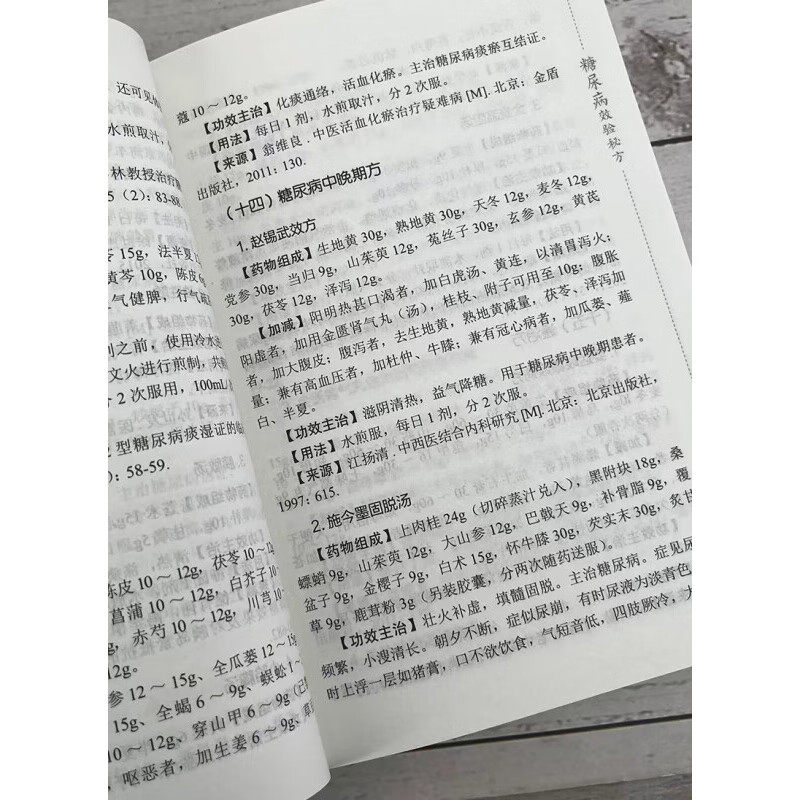 还可见
水煎取汁，
林教授治疗
5（2）：83-
15g，法半夏
黄芩 10g，陈皮
气健脾，行气
之前，使用冷水
文火进行煎制，共
2 次服用，100mL/
型糖尿病痰湿证的临
：58-59.
陈皮 10～12g，茯苓 10～
菖蒲 10～12g，白芥子
，赤芍 10～12g，川芎
12g。
参 12～15g、全瓜蒌 12～
15g、全蝎 6～9g、蜈蚣 1～
10～12g、穿山甲 6～9g
，呕恶者，加生姜 6～9g、
蔻 10～12g。
【功效主治】化痰通络，活血化瘀。主治糖尿病痰瘀互结证。
【用法】每日 1 剂，水煎取汁，分 2 次服。
【来源】翁维良 . 中医活血化瘀治疗疑难病 [M]. 北京：金盾
出版社，2011：130.
（十四）糖尿病中晚期方
1. 赵锡武效方
【药物组成】生地黄 30g，熟地黄 30g，天冬 12g，麦冬 12g，
党参 30g，当归 9g，山茱萸 12g，菟丝子 30g，玄参 12g，黄芪
30g，茯苓 12g，泽泻 12g。
【加减】阳明热甚口渴者，加白虎汤、黄连，以清胃泻火；
阳虚者，加用金匮肾气丸（汤），桂枝、附子可用至 10g；腹胀
者，加大腹皮；腹泻者，去生地黄，熟地黄减量，茯苓，泽泻加
量；兼有高血压者，加杜仲、牛膝；兼有冠心病者，加瓜蒌、薤
白、半夏。
【功效主治】滋阴清热，益气降糖。用于糖尿病中晚期患者。
【用法】水煎服，每日 1 剂，分 2 次服。
【来源】江扬清 . 中西医结合内科研究 [M]. 北京：北京出版社，
1997：615.
2. 施今墨固脱汤
【药物组成】上肉桂 24g（切碎蒸汁兑入），黑附块 18g，桑
螵蛸 9g，山茱萸 12g，大山参 12g，巴戟天 9g，补骨脂 9g，覆
盆子 9g，金樱子 9g，白术 15g，怀牛膝 30g，芡实末 30g，炙甘
草 9g，鹿茸粉 3g（另装胶囊，分两次随药送服）。
【功效主治】壮火补虚，填髓固脱。主治糖尿病。症见尿
频繁，小溲清长。朝夕不断，症似尿崩，有时尿液为淡青色，
时上浮一层如猪膏，口不欲饮食，气短音低，四肢厥冷，
糖尿病效验秘方